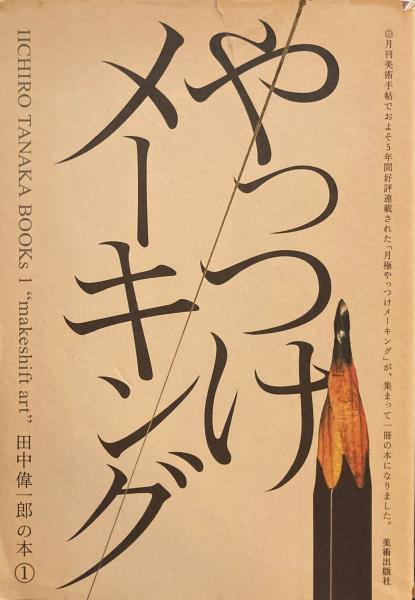 ◎月刊美術手帖でおよそ5年間好評連載された「月極やっつけメーキング」が、集まって一冊の本になりました。 美術出版社
やっつけ
メーキング
IICHIRO TANAKA BOOKs 1 “makeshift art” 田中偉一郎の本①